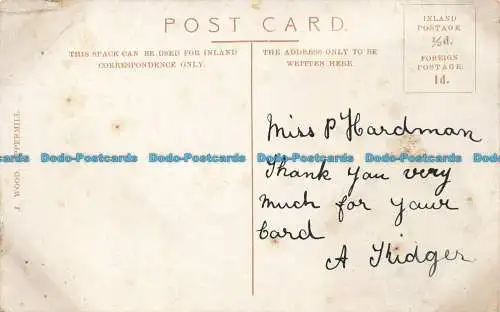 POST CARD.
THIS SPACE CAN BE USED FOR INLAND
CORRESPONDENCE ONLY.
THE ADDRESS ONLY TO BE
WRITTEN HERE
INLAND
POSTAGE
½d.
FOREIGN
POSTAGE
1d.
J WOOD,
Miss P Hardman
Dodo-Postcards Dodo-Postcards Dodo-Postcards Dodo-Postcards
Thank you very
much for your
Card
A Kidger